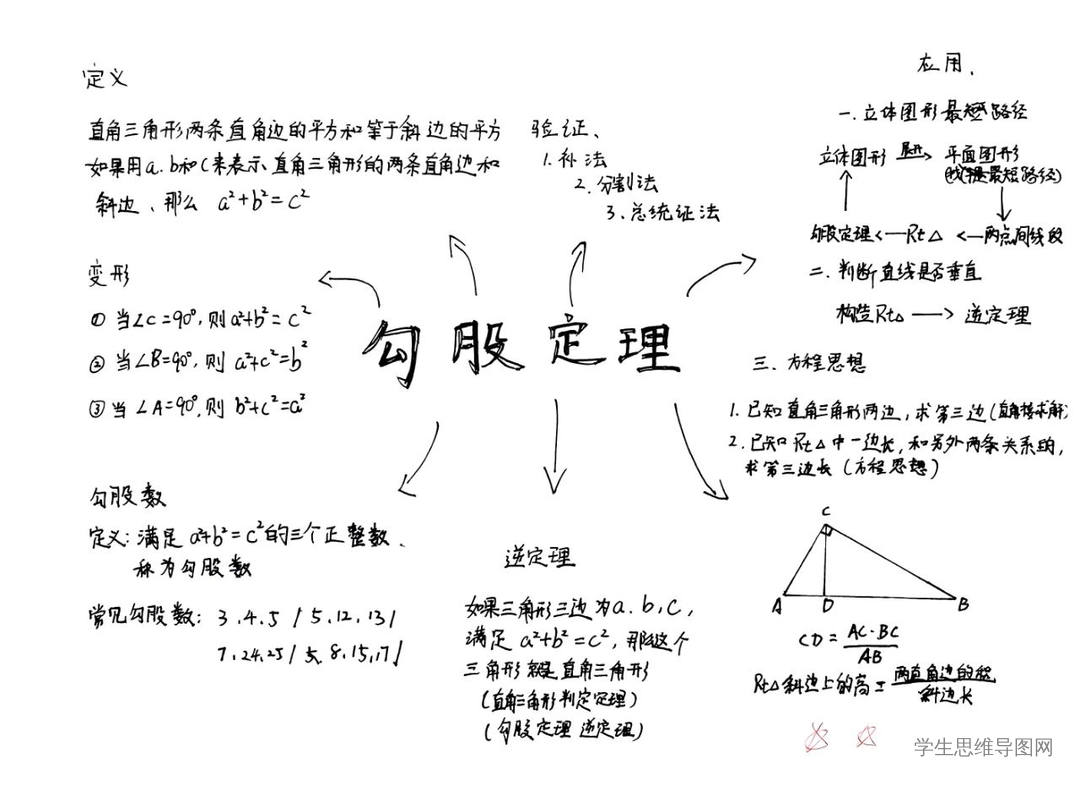 定义
直角三角形两条直角边的平方和等于斜边的平方
如果用a.b和c来表示直角三角形的两条直角边和
斜边、那么 a²+b²=c²
验证、
1.补法
2.分割法
3.总统证法
应用、
一.立体图形最短路径
立体图形 展开 平面图形
(找最短路径)
勾股定理<—Rt△ <—两点间线段
二.判断直线是否垂直
构造Rt△ —> 逆定理
三、方程思想
1.已知直角三角形两边,求第三边(直接求解)
2.已知Rt△中一边长,和另外两条关系的,
求第三边长(方程思想)
变形
① 当∠C=90°,则a²+b²=c²
② 当∠B=90°,则 a²+c²=b²
③ 当 ∠A=90°,则 b²+c²=a²
勾股定理
勾股数
定义:满足 a²+b²=c²的三个正整数、
称为勾股数
常见勾股数: 3.4.5 / 5.12.13/
7.24.25/ 8.15.17/
逆定理
如果三角形三边为a.b,c,
满足 a²+b²=c²,那么这个
三角形就是直角三角形
(直角三角形判定定理)
(勾股定理 逆定理)
C
A D B
CD = AC·BC
AB
Rt△斜边上的高= 两直角边的积
斜边长
学生思维导图网